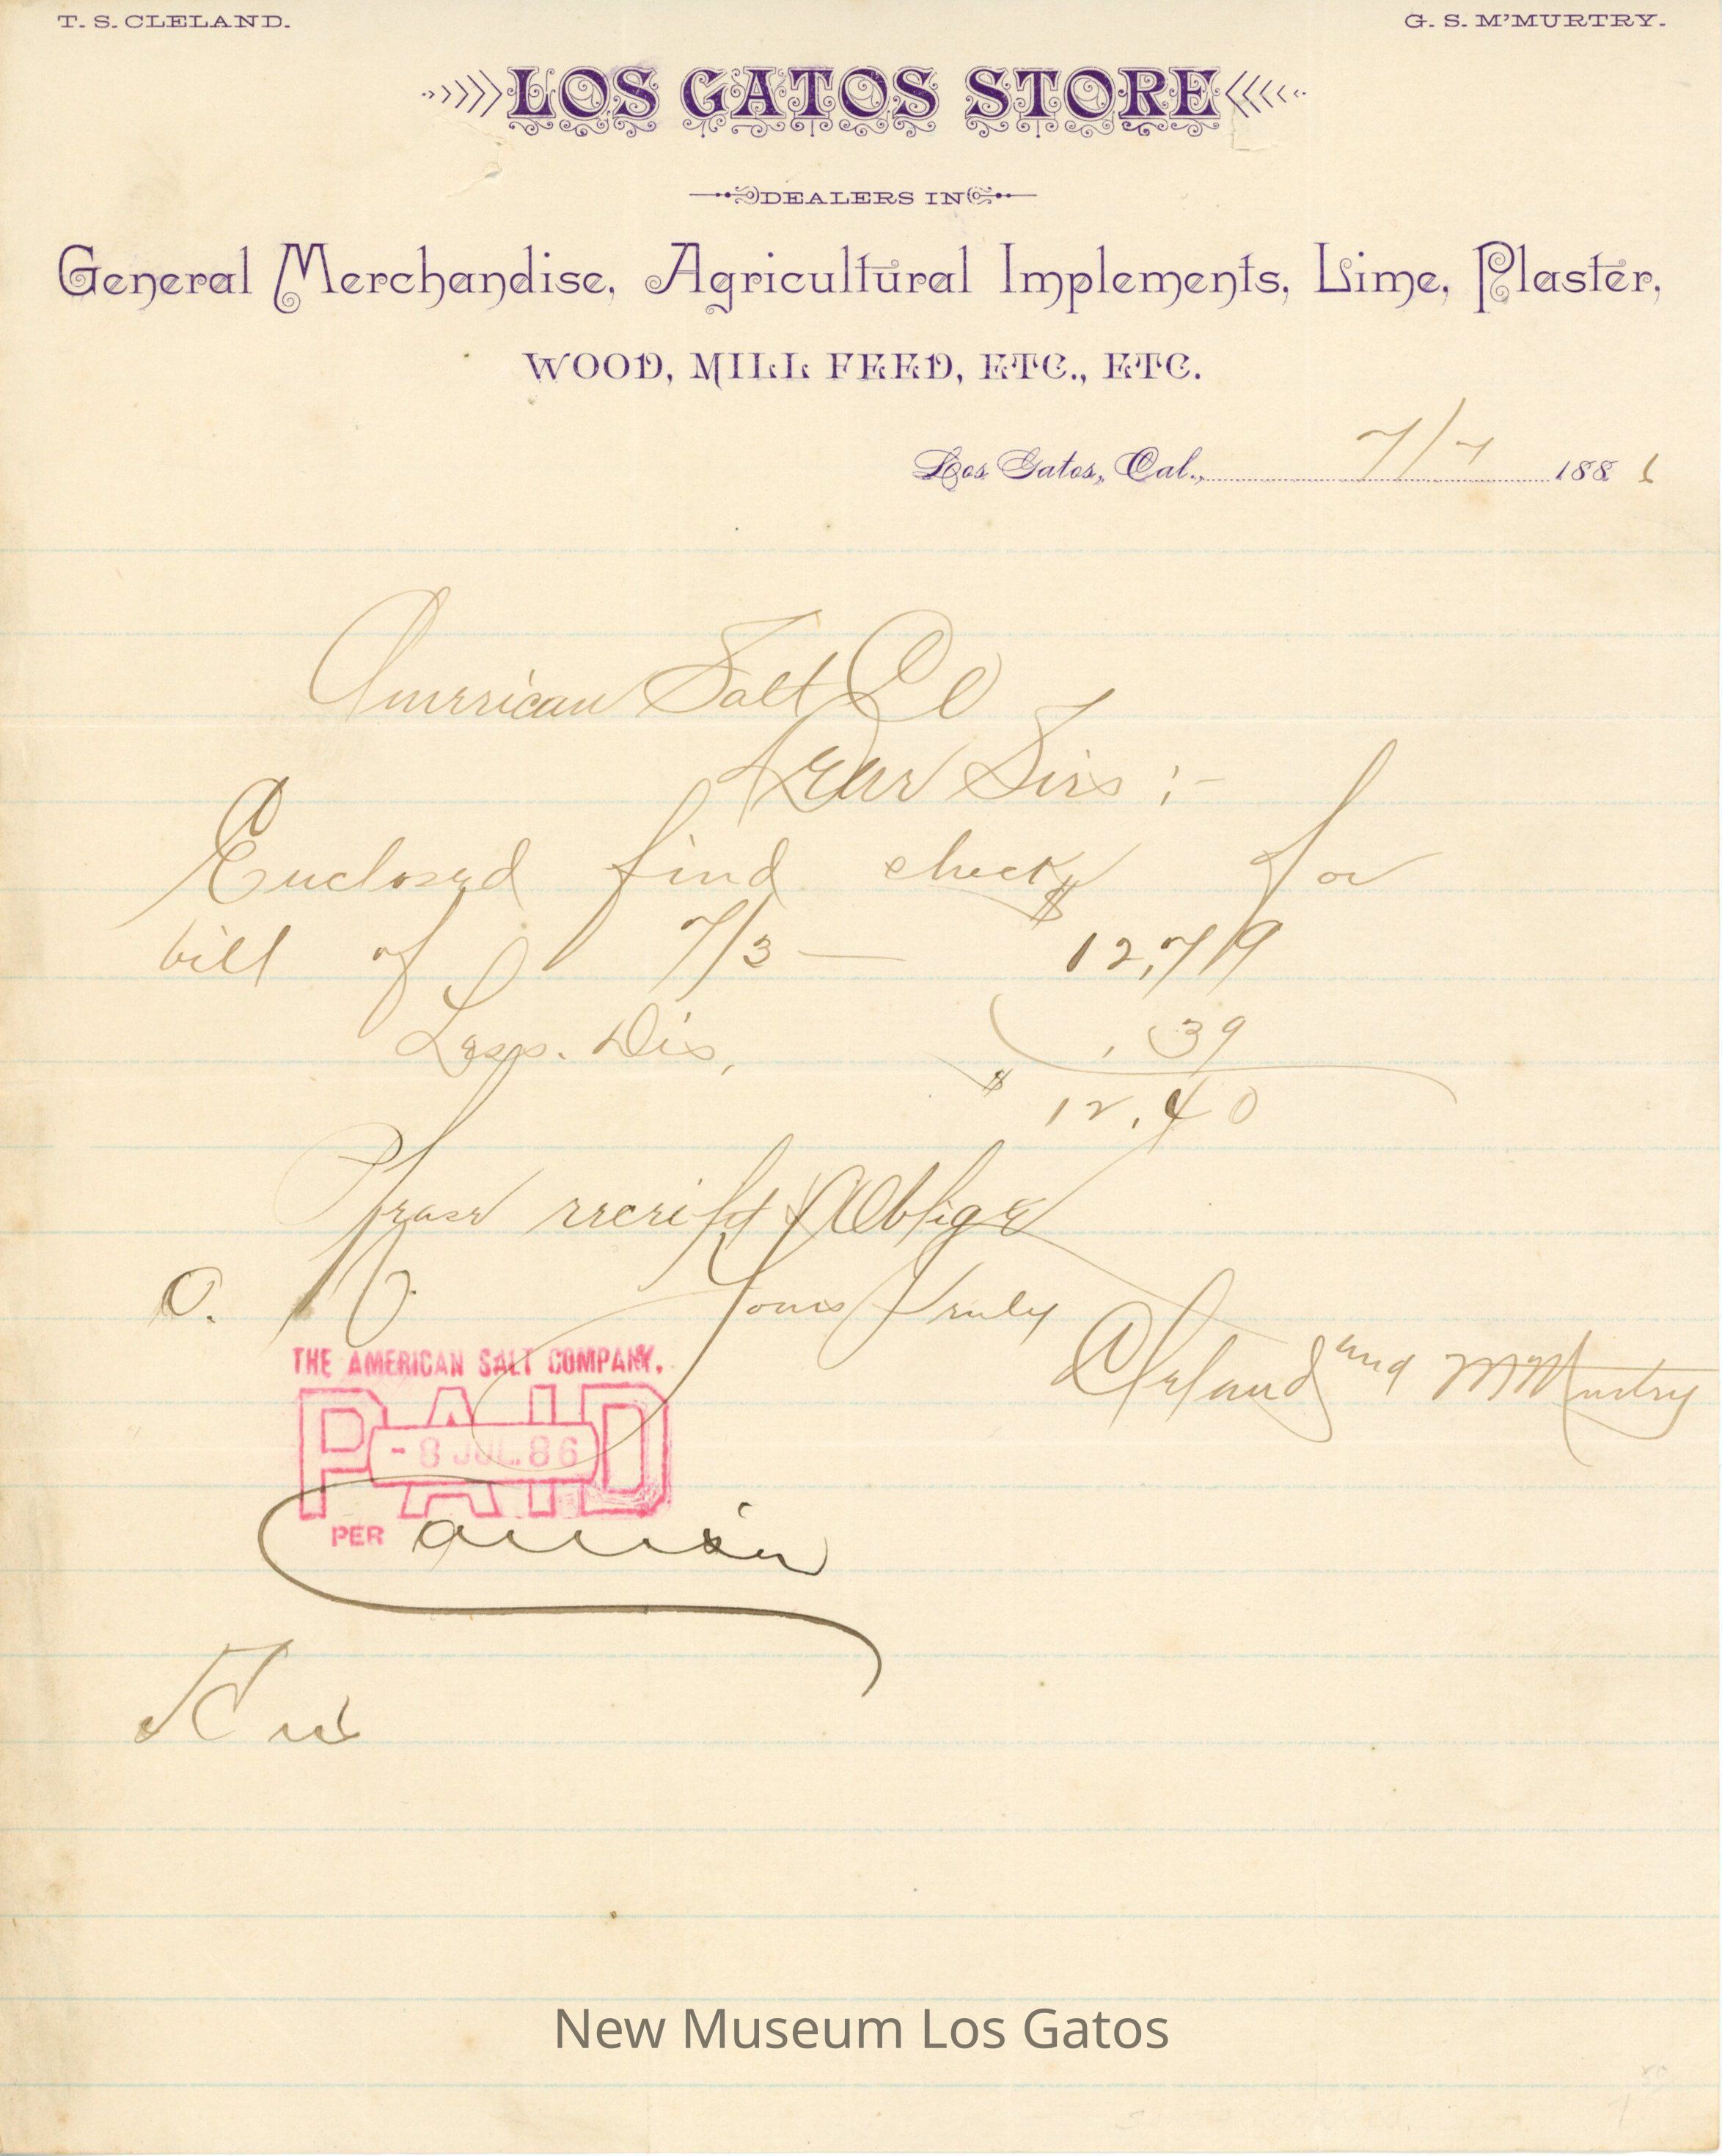 T. S. CLELAND.
G. S. M'MURTRY.
LOS GATOS STORE
DEALERS IN
General Merchandise, Agricultural Implements, Lime, Plaster,
WOOD, MILL FEED, ETC., ETC.
Los Gatos, Cal., 7/7 1886
American Salt Co
Dear Sirs :-
Enclosed find check for
bill of 7/3 — $12.79
Less. Dis, .39
$12.40
Please receipt & Oblige
O. K. Yours Truly
Cleland and McMurtry
THE AMERICAN SALT COMPANY.
PAID
- 8 JUL. 86
PER
New Museum Los Gatos